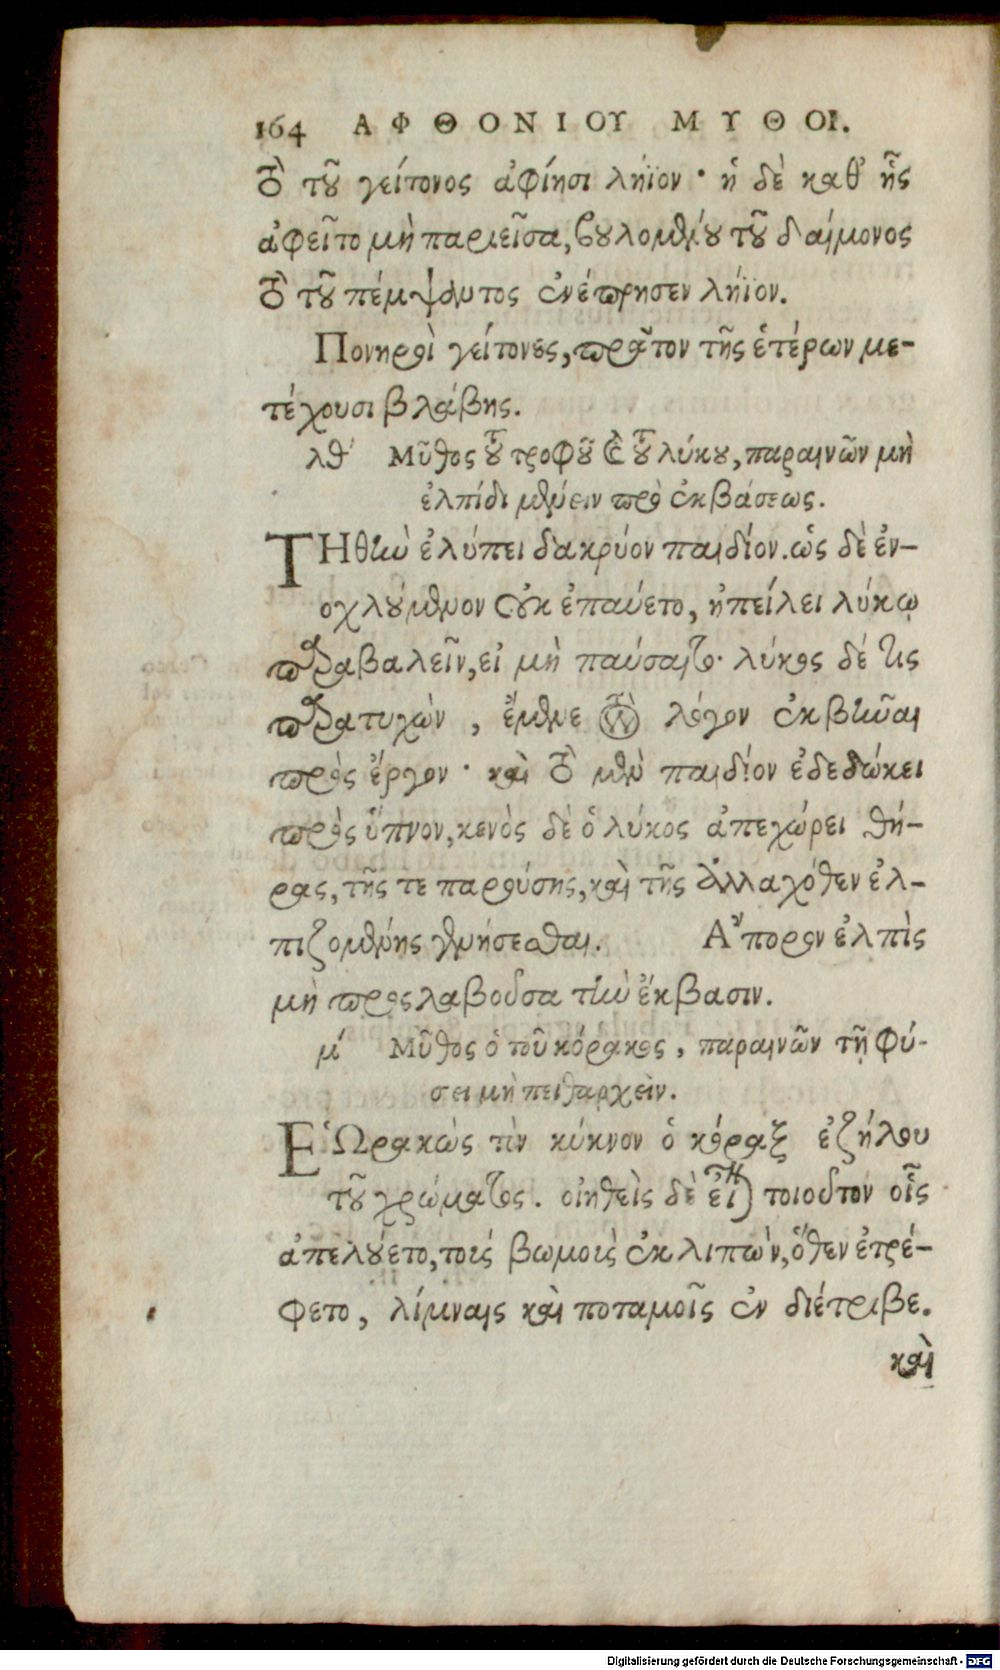 164 ΑΦΘΟΝΙΟΥ ΜΥΘΟΙ.
τὸ τοῦ γείτονος ἀφίησι λήϊον· ἡ δὲ καθ' ἧς
ἀφεῖτο μὴ παριεῖσα, βουλομένου τοῦ δαίμονος
τὸ τοῦ πέμψαντος ἐνέπρησεν λήϊον.
Πονηροὶ γείτονες, πρῶτον τῆς ἑτέρων με-
τέχουσι βλάβης.
λθ' Μῦθος ὁ τοῦ τροφοῦ καὶ τοῦ λύκου, παραινῶν μὴ
ἐλπίδι μένειν πρὸ ἐκβάσεως.
ΤΗθὴν ἐλύπει δακρύον παιδίον. ὡς δὲ ἐν-
οχλούμενον οὐκ ἐπαύετο, ἠπείλει λύκῳ
παραβαλεῖν, εἰ μὴ παύσαιτο· λύκος δέ τις
παρατυχὼν, ἔμενε τὸν λόγον ἐκβῆναι
πρὸς ἔργον· καὶ τὸ μὲν παιδίον ἐδεδώκει
πρὸς ὕπνον, κενὸς δὲ ὁ λύκος ἀπεχώρει θή-
ρας, τῆς τε παρούσης, καὶ τῆς ἀλλαχόθεν ἐλ-
πιζομένης γενήσεσθαι. Ἄπορον ἐλπὶς
μὴ προσλαβοῦσα τὴν ἔκβασιν.
μ' Μῦθος ὁ τοῦ κόρακος, παραινῶν τῇ φύ-
σει μὴ πειθαρχεῖν.
ΕὉΩρακὼς τὶν κύκνον ὁ κόραξ ἐζήλου
τοῦ χρώματος. οἰηθεὶς δὲ εἶναι τοιοῦτον οἷς
ἀπελούετο, τοὶς βωμοὶς ἐκλιπὼν, ὅθεν ἐτρέ-
φετο, λίμναις καὶ ποταμοῖς ἐνδιέτριβε.
καὶ
Digitalisierung gefördert durch die Deutsche Forschungsgemeinschaft - DFG